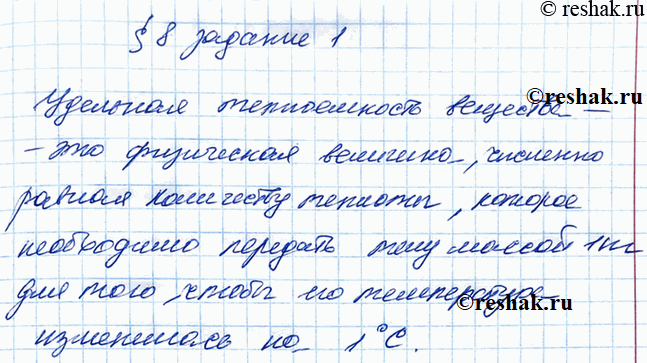 ©reshak.ru
§ 8 задание 1
Удельная теплоемкость вещества —
— это физическая величина, численно
равная количеству теплоты, которое
необходимо передать телу массой 1 кг
для того, чтобы его температура
изменилась на 1°С.
©reshak.ru
©reshak.ru
©reshak.ru
©reshak.ru